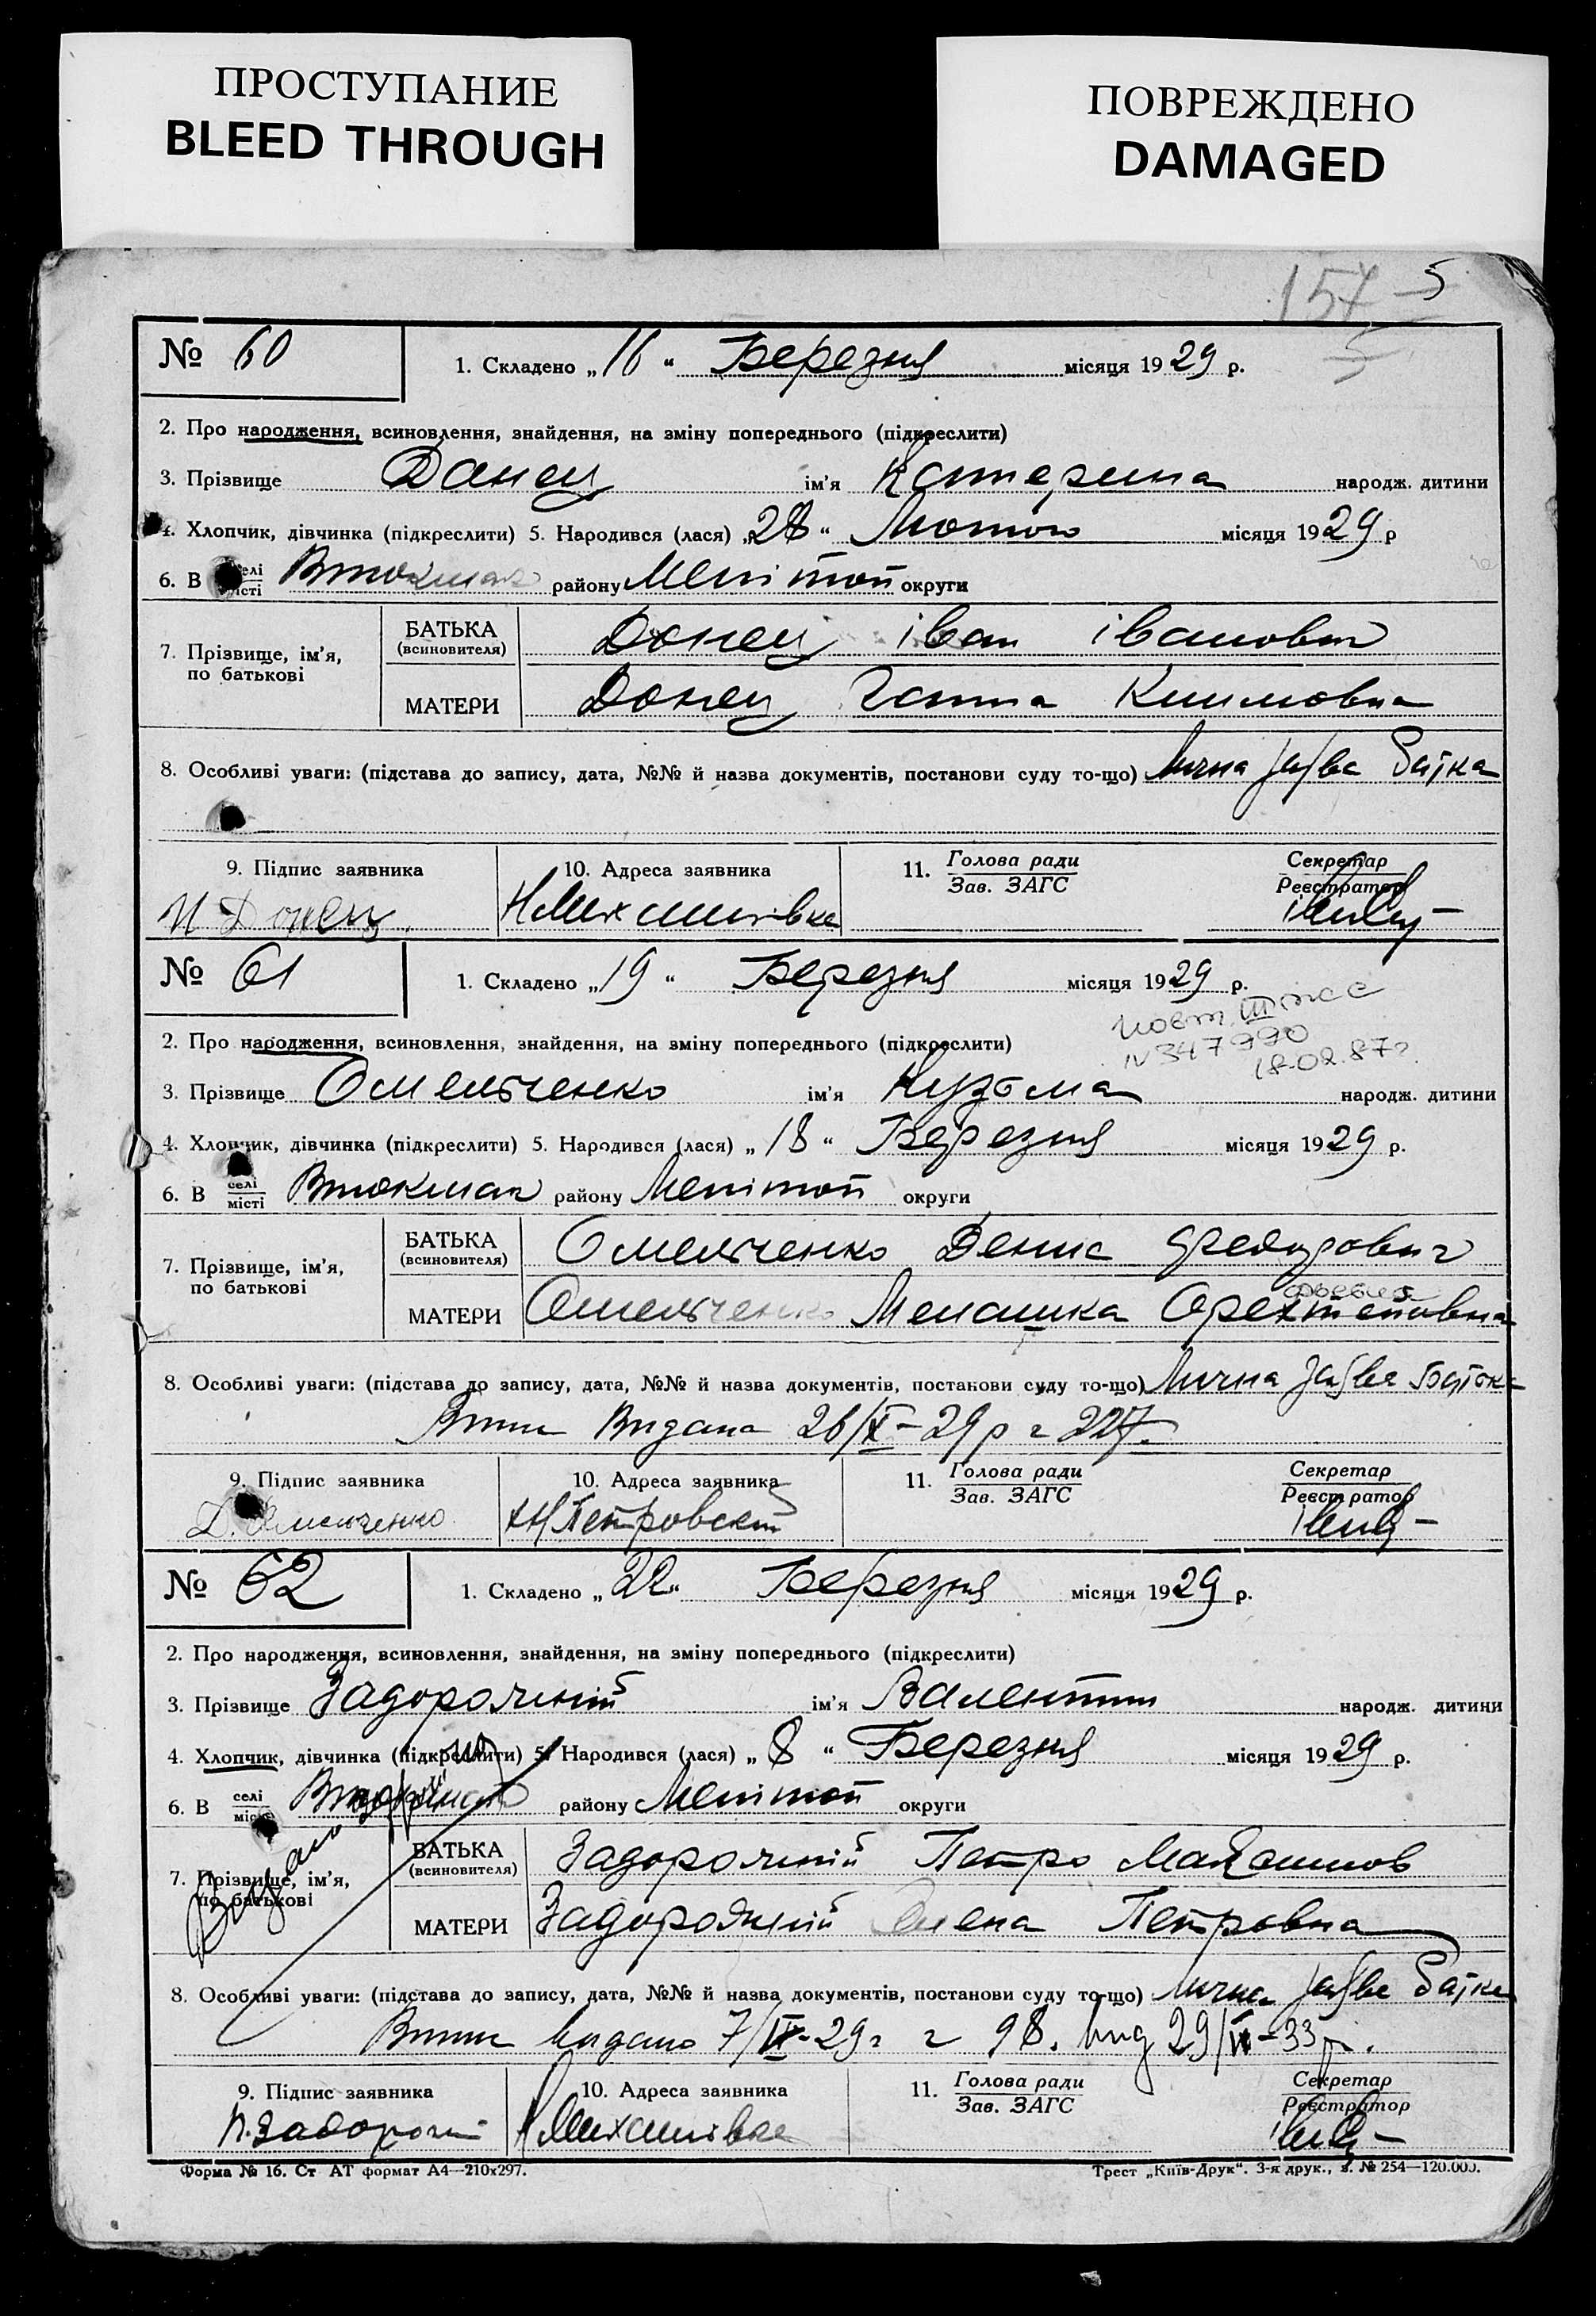 ПРОСТУПАНИЕ
BLEED THROUGH
ПОВРЕЖДЕНО
DAMAGED
157 5
5
№ 60 1. Складено „16“ Березня місяця 1929 р.
2. Про народження, всиновлення, знайдення, на зміну попереднього (підкреслити)
3. Прізвище Данец ім'я Катерина народж. дитини
4. Хлопчик, дівчинка (підкреслити) 5. Народився (лася) „28“ Лютого місяця 1929 р
6. В селі місті Втокмак району Мелітоп округи
7. Прізвище, ім'я, по батькові
БАТЬКА (всиновителя) Донец іван іванович
МАТЕРИ Донец Ганна Климовна
8. Особливі уваги: (підстава до запису, дата, №№ й назва документів, постанови суду то-що) Лична заява батка
9. Підпис заявника 10. Адреса заявника 11. Голова ради Зав. ЗАГС Секретар Реєстратор
И Донец Н Михайлівка
№ 61 1. Складено „19“ Березня місяця 1929 р.
N 347990
18-02.87г.
2. Про народження, всиновлення, знайдення, на зміну попереднього (підкреслити)
3. Прізвище Омельченко ім'я Кузьма народж. дитини
4. Хлопчик, дівчинка (підкреслити) 5. Народився (лася) „18“ Березня місяця 1929 р.
6. В селі місті Втокмак району Мелітоп округи
7. Прізвище, ім'я, по батькові
БАТЬКА (всиновителя) Омельченко Денис Федорович
МАТЕРИ Омельченко Мелашка
8. Особливі уваги: (підстава до запису, дата, №№ й назва документів, постанови суду то-що) Лична заява батька
Витяг Видана 26/X-29 р 227.
9. Підпис заявника 10. Адреса заявника 11. Голова ради Зав. ЗАГС Секретар Реєстратор
Д. Омельченко Петровськ
№ 62 1. Складено „22“ Березня місяця 1929 р.
2. Про народження, всиновлення, знайдення, на зміну попереднього (підкреслити)
3. Прізвище Задорожній ім'я Валентин народж. дитини
4. Хлопчик, дівчинка (підкреслити) 5. Народився (лася) „8“ Березня місяця 1929 р.
6. В селі місті Втокмак району Мелітоп округи
7. Прізвище, ім'я, по батькові
БАТЬКА (всиновителя) Задорожній Петро
МАТЕРИ Задорожній Олена Петровна
8. Особливі уваги: (підстава до запису, дата, №№ й назва документів, постанови суду то-що) Лична заява батка
Витяг видано 98.
9. Підпис заявника 10. Адреса заявника 11. Голова ради Зав. ЗАГС Секретар Реєстратор
П. Задорожн Н Михайлівка
Форма № 16. Ст АТ формат А4—210х297. Трест „Київ-Друк“. 3-я друк., з. № 254—120.000.